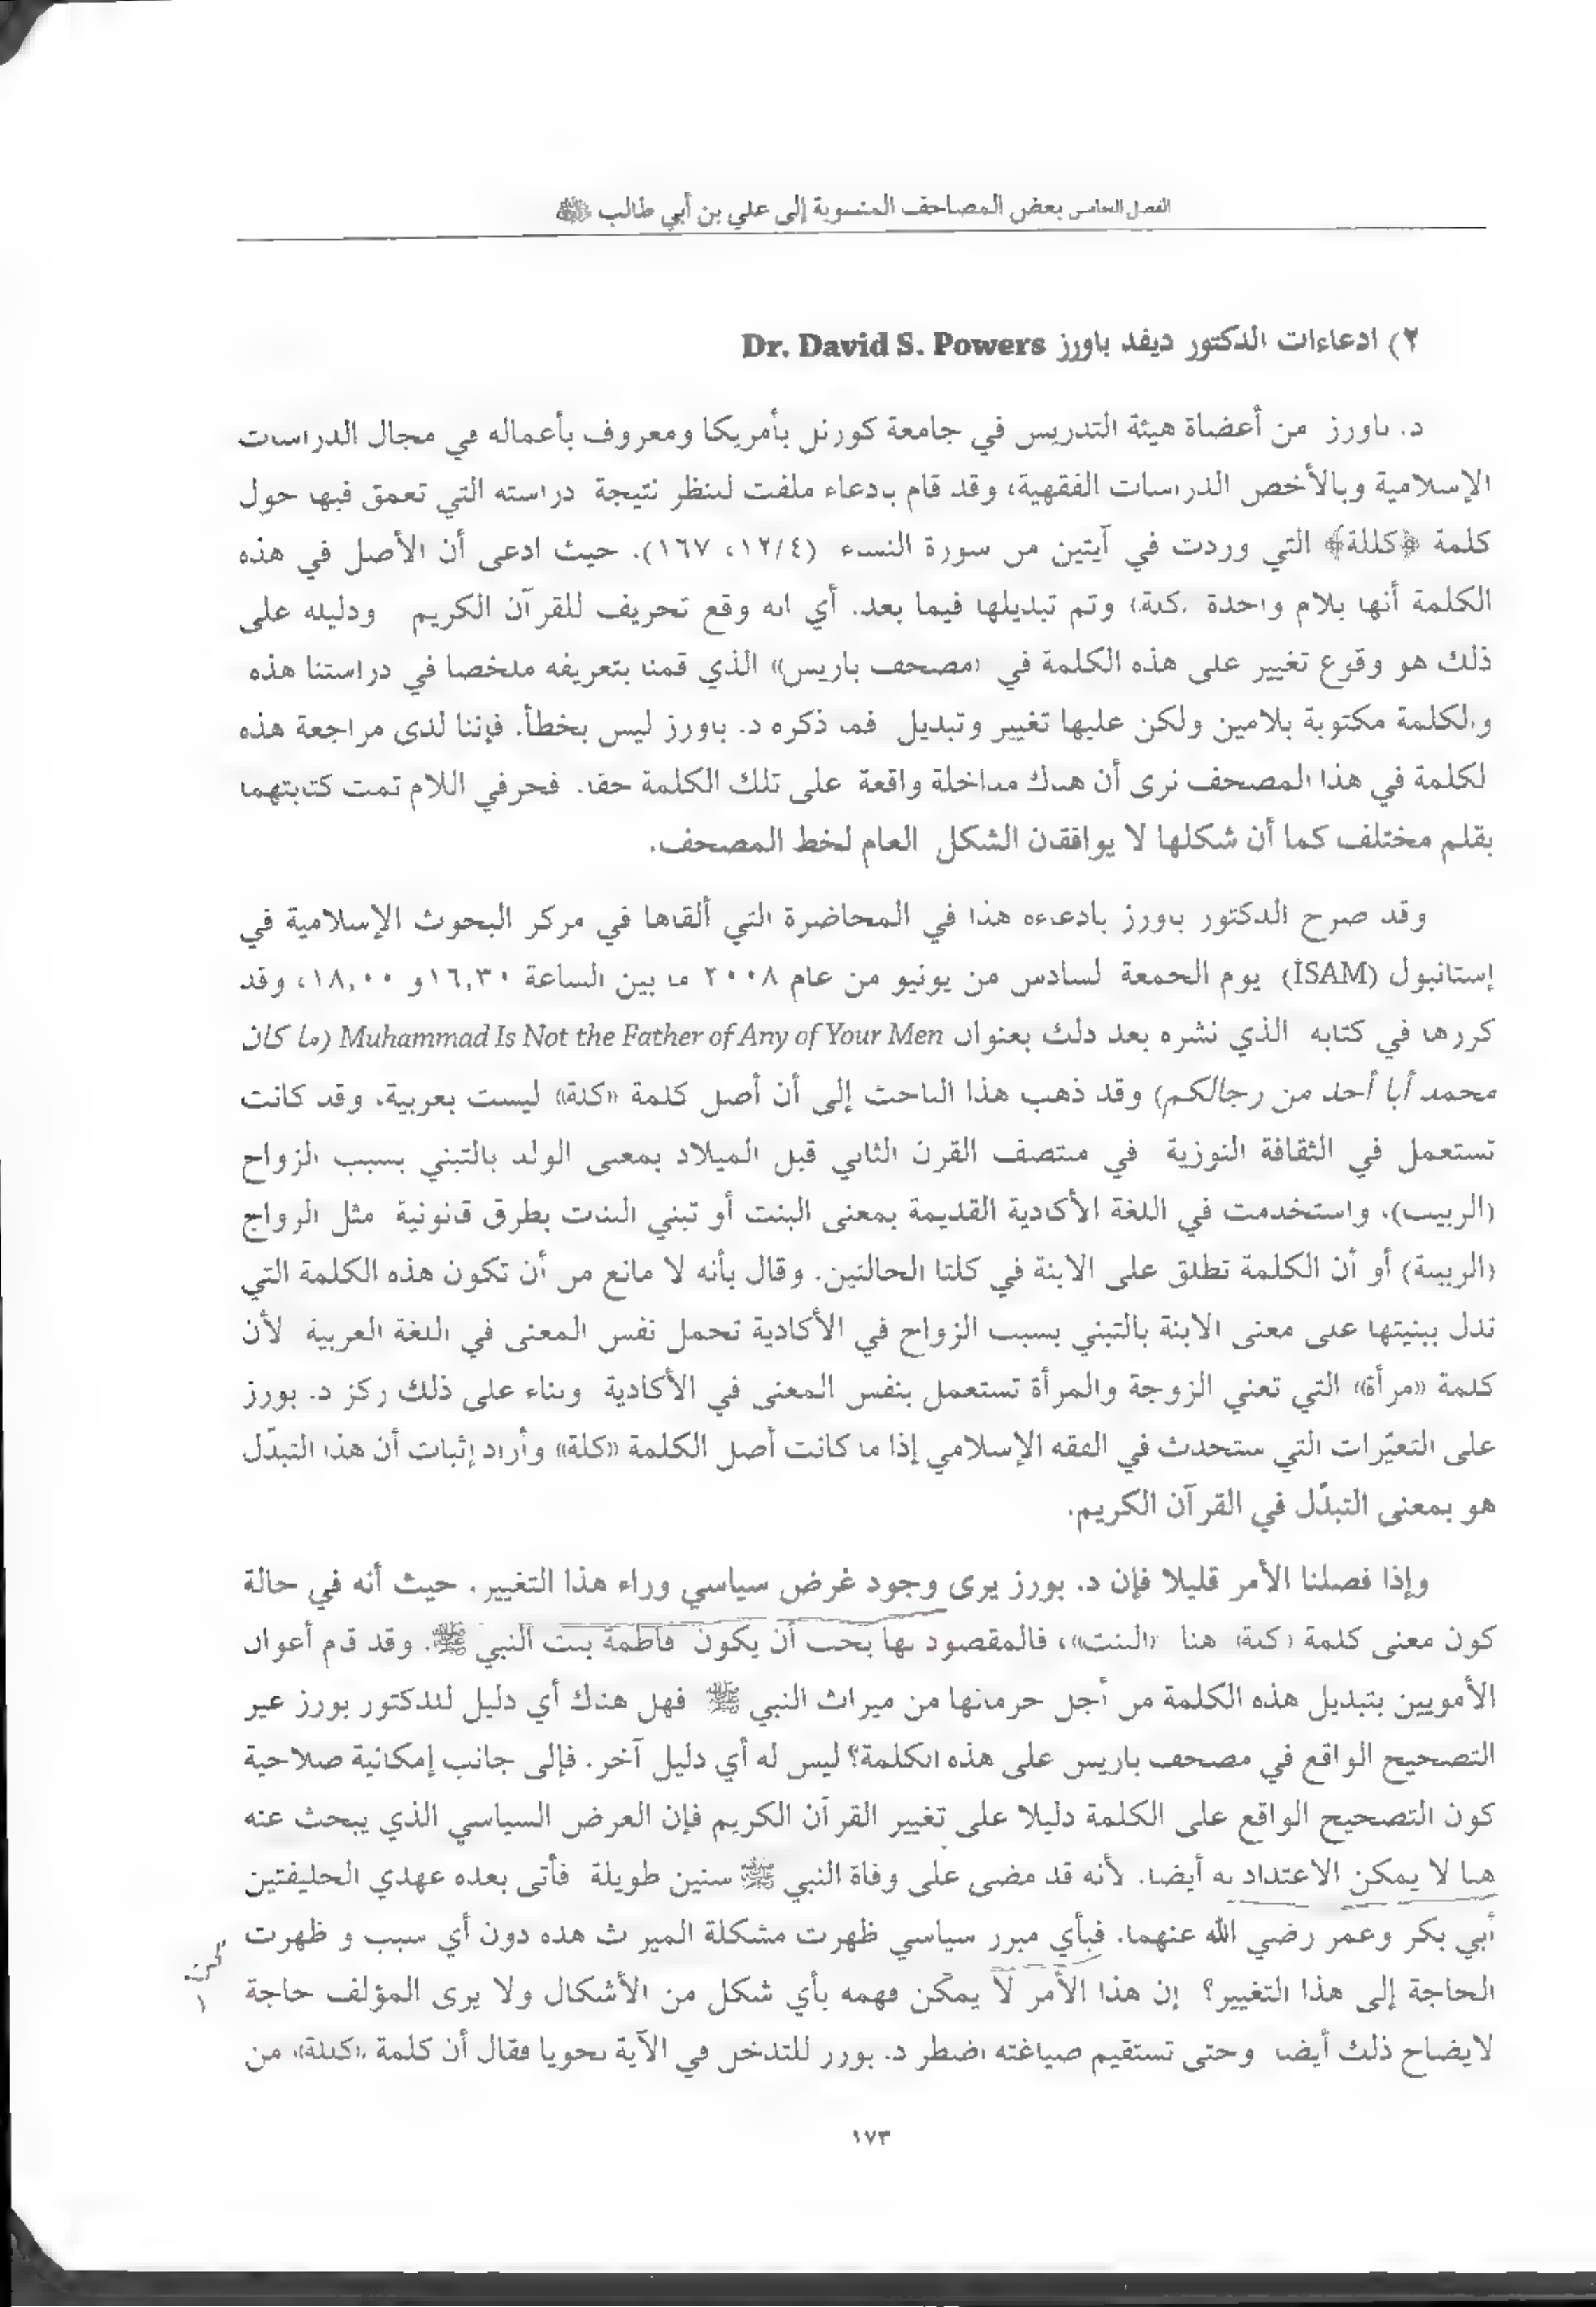 الفصل الخامس بعض المصاحف المنسوبة إلى علي بن أبي طالب ﷺ
٢) ادعاءات الدكتور ديفد باورز Dr. David S. Powers
د. باورز من أعضاة هيئة التدريس في جامعة كورنل بأمريكا ومعروف بأعماله في مجال الدراسات
الإسلامية وبالأخص الدراسات الفقهية، وقد قام بادعاء ملفت للنظر نتيجة دراسته التي تعمق فيها حول
كلمة ﴿كللة﴾ التي وردت في آيتين من سورة النساء (١٢/٤، ١٦٧). حيث ادعى أن الأصل في هذه
الكلمة أنها بلام واحدة (كلة) وتم تبديلها فيما بعد. أي انه وقع تحريف للقرآن الكريم ودليله على
ذلك هو وقوع تغيير على هذه الكلمة في «مصحف باريس» الذي قمنا بتعريفه ملخصا في دراستنا هذه
والكلمة مكتوبة بلامين ولكن عليها تغيير وتبديل فما ذكره د. باورز ليس بخطأ. فإننا لدى مراجعة هذه
لكلمة في هذا المصحف نرى أن هناك مداخلة واقعة على تلك الكلمة حقا. فحرفي اللام تمت كتابتهما
بقلم مختلف كما أن شكلها لا يوافقان الشكل العام لخط المصحف.
وقد صرح الدكتور باورز بادعاءه هذا في المحاضرة التي ألقاها في مركز البحوث الإسلامية في
إستانبول (İSAM) يوم الجمعة لسادس من يونيو من عام ٢٠٠٨ ما بين الساعة ١٦,٣٠ و ١٨,٠٠، وقد
كررها في كتابه الذي نشره بعد ذلك بعنوان Muhammad Is Not the Father of Any of Your Men (ما كان
محمد أبا أحد من رجالكم) وقد ذهب هذا الباحث إلى أن أصل كلمة «كلة» ليست بعربية، وقد كانت
تستعمل في الثقافة النوزية في منتصف القرن الثاني قبل الميلاد بمعنى الولد بالتبني بسبب الزواج
(الربيب)، واستخدمت في اللغة الأكادية القديمة بمعنى البنت أو تبني البنات بطرق قانونية مثل الزواج
(الربيبة) أو أن الكلمة تطلق على الابنة في كلتا الحالتين. وقال بأنه لا مانع من أن تكون هذه الكلمة التي
تدل ببنيتها على معنى الابنة بالتبني بسبب الزواج في الأكادية تحمل نفس المعنى في اللغة العربية لأن
كلمة «مرأة» التي تعني الزوجة والمرأة تستعمل بنفس المعنى في الأكادية وبناء على ذلك ركز د. بورز
على التغيّرات التي ستحدث في الفقه الإسلامي إذا ما كانت أصل الكلمة «كلة» وأراد إثبات أن هذا التبدّل
هو بمعنى التبدّل في القرآن الكريم.
وإذا فصلنا الأمر قليلا فإن د. بورز يرى وجود غرض سياسي وراء هذا التغيير. حيث أنه في حالة
كون معنى كلمة (كلة) هنا «البنت»، فالمقصود بها يجب أن يكون فاطمة بنت النبي ﷺ. وقد قام أعوان
الأمويين بتبديل هذه الكلمة من أجل حرمانها من ميراث النبي ﷺ فهل هناك أي دليل للدكتور بورز غير
التصحيح الواقع في مصحف باريس على هذه الكلمة؟ ليس له أي دليل آخر. فإلى جانب إمكانية صلاحية
كون التصحيح الواقع على الكلمة دليلا على تغيير القرآن الكريم فإن الغرض السياسي الذي يبحث عنه
هنا لا يمكن الاعتداد به أيضا. لأنه قد مضى على وفاة النبي ﷺ سنين طويلة فأتى بعده عهدي الخليفتين
أبي بكر وعمر رضي الله عنهما. فبأي مبرر سياسي ظهرت مشكلة الميراث هذه دون أي سبب و ظهرت
الحاجة إلى هذا التغيير؟ إن هذا الأمر لا يمكن فهمه بأي شكل من الأشكال ولا يرى المؤلف حاجة
لايضاح ذلك أيضا وحتى تستقيم صياغته اضطر د. بورز للتدخل في الآية نحويا فقال أن كلمة «كللة» من
١٧٣